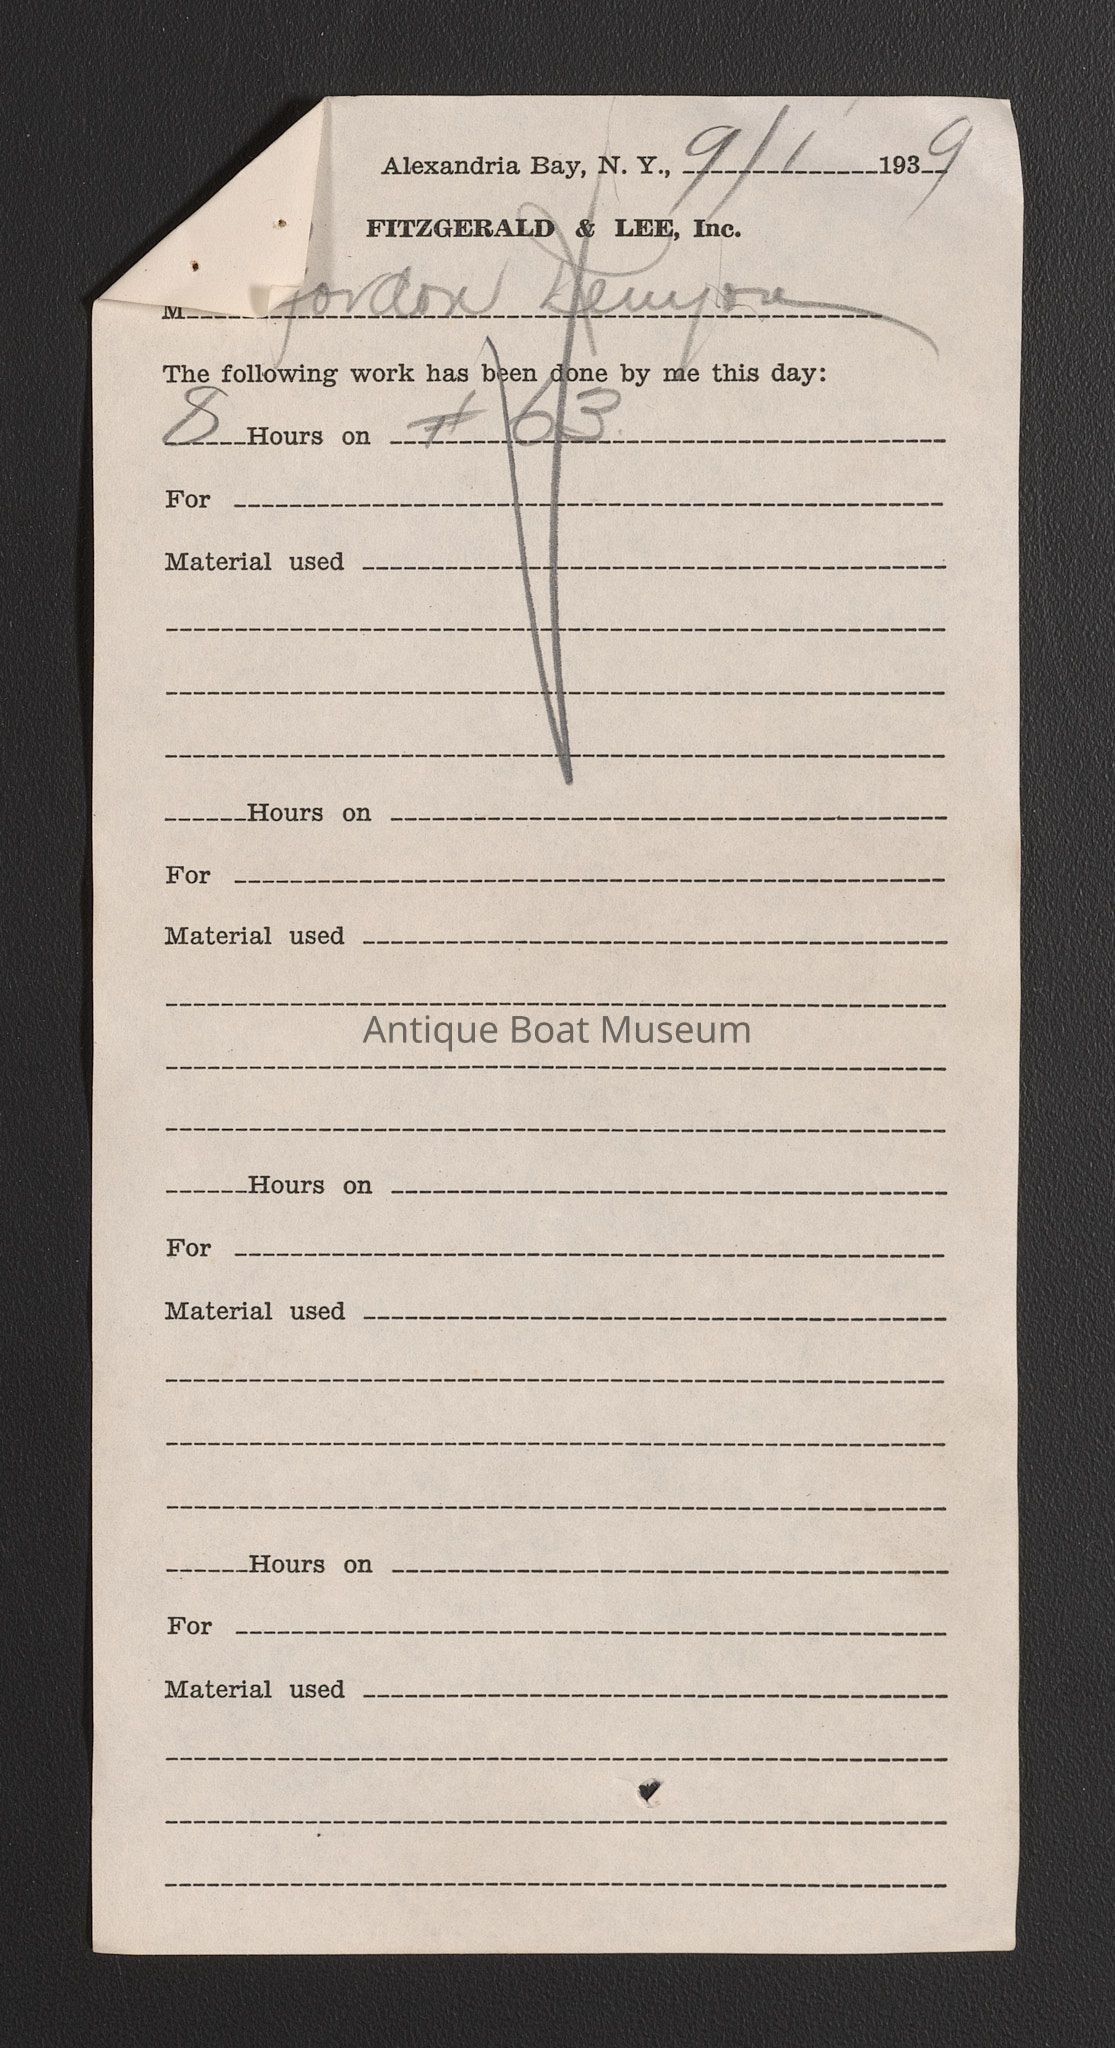 Alexandria Bay, N. Y., 9/1 1939
FITZGERALD & LEE, Inc.
M Gordon Kenyon
The following work has been done by me this day:
8 Hours on # 63.
For
Material used
Hours on
For
Material used
Antique Boat Museum
Hours on
For
Material used
Hours on
For
Material used